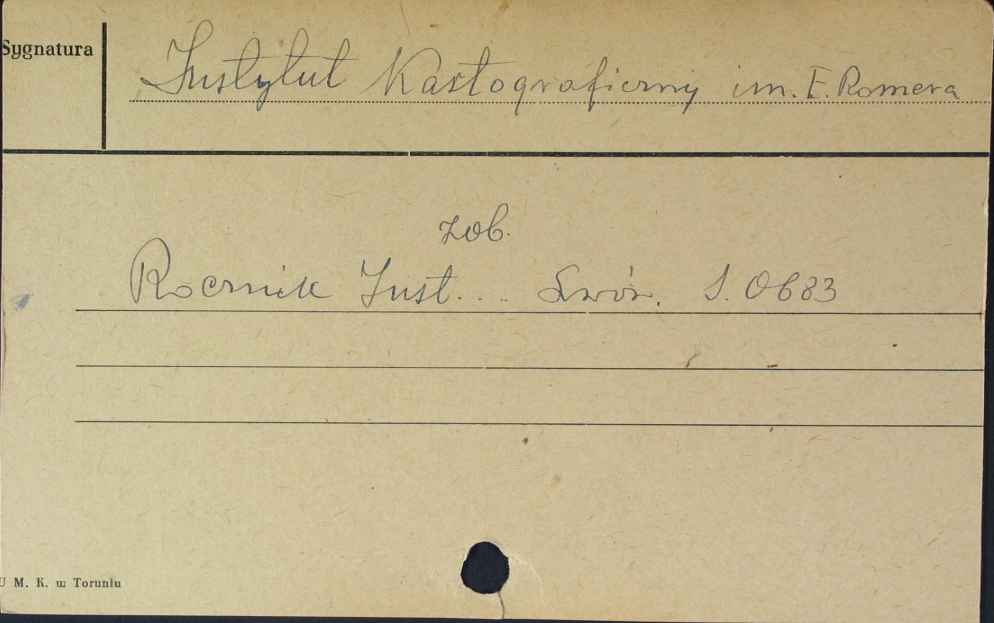 Sygnatura
Instytut Kartograficzny im. E. Romera
zob.
Rocznik Inst... Lwów. S. 0683
U M. K. w Toruniu